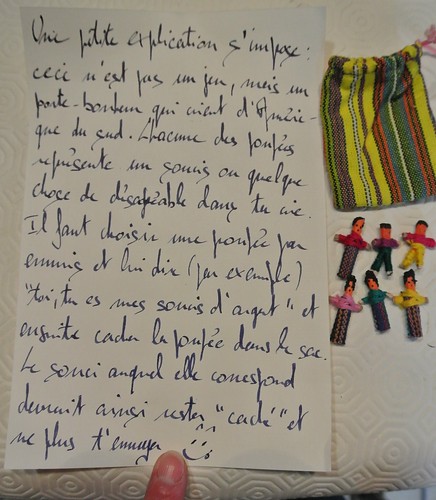 Une petite explication s'impose :
ceci n'est pas un jeu, mais un
porte-bonheur qui vient d'Améri-
que du sud. Chacune des poupées
représente un soucis ou quelque
chose de désagréable dans ta vie.
Il faut choisir une poupée par
ennuis et lui dire (par exemple)
"toi, tu es mes soucis d'argent" et
ensuite cacher la poupée dans le sac.
Le souci auquel elle correspond
devrait ainsi rester "caché" et
ne plus t'ennuyer